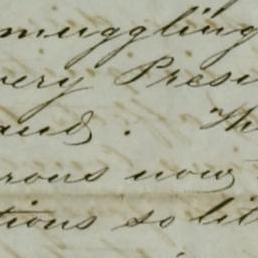 muggling
very Presi
and. Th
rous now
tions so lit